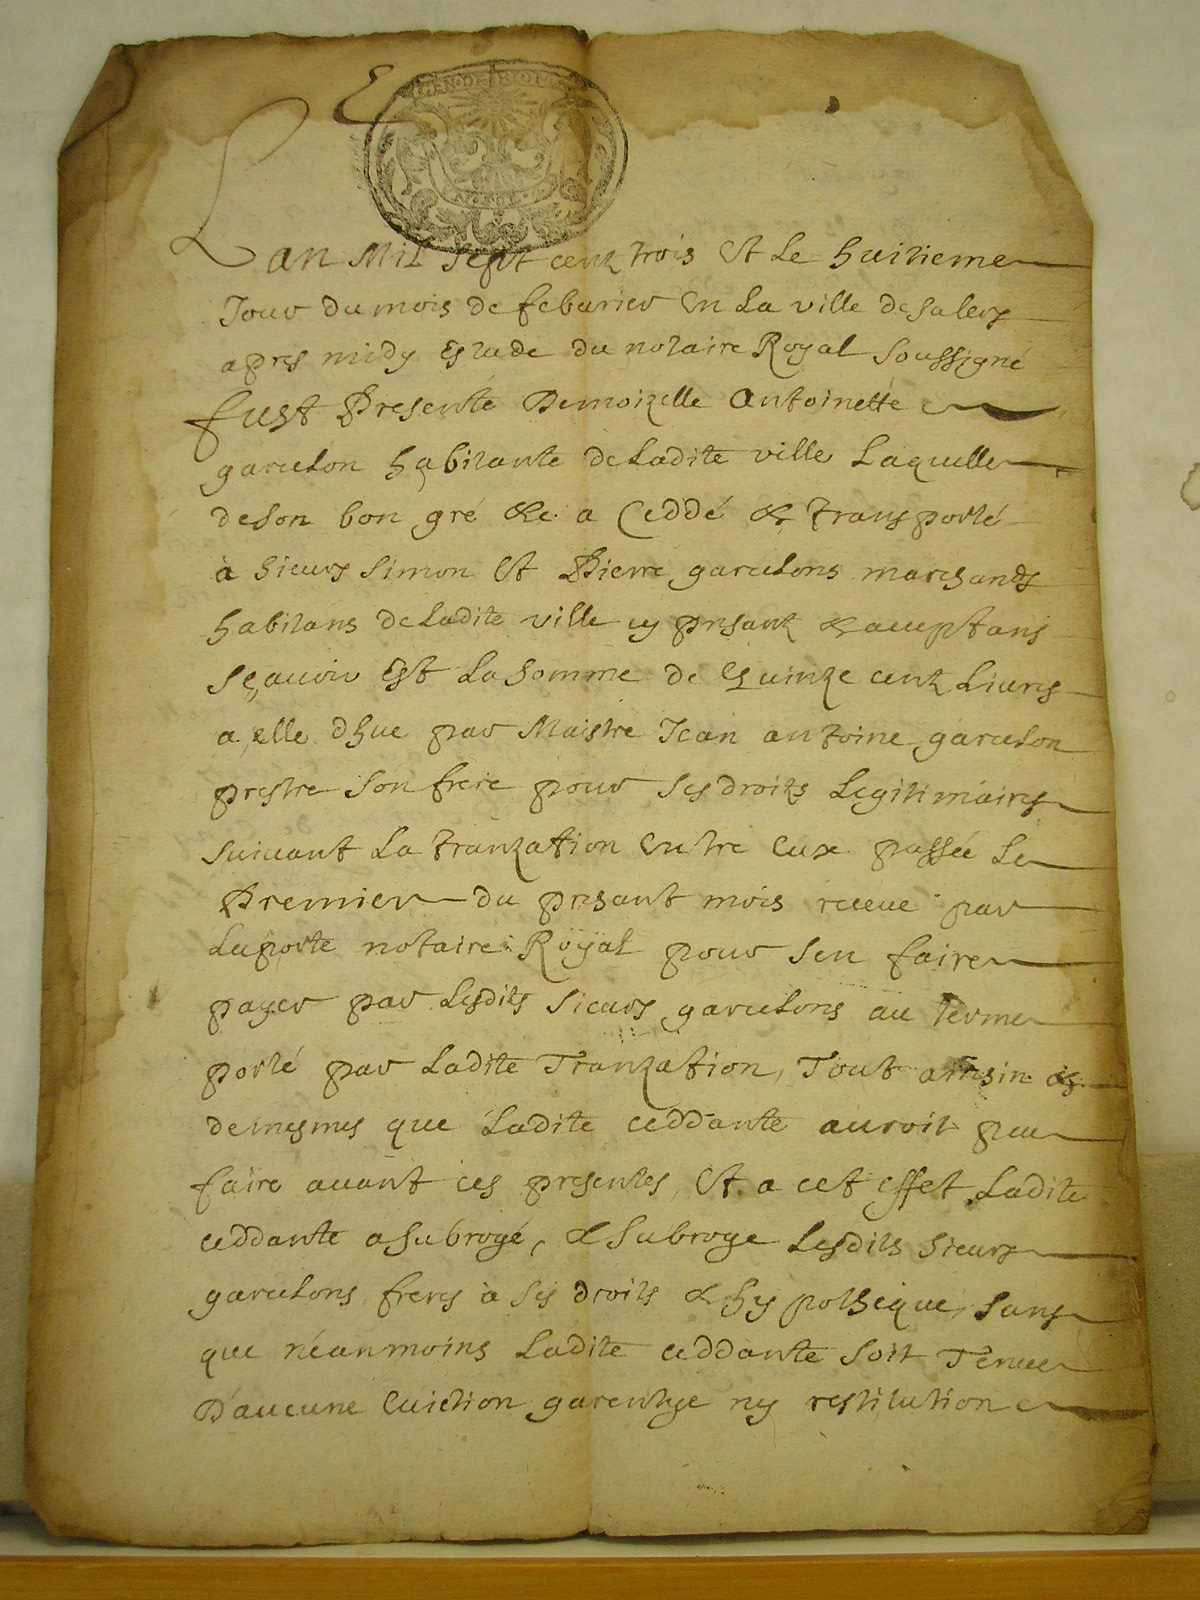 GEN. DE RIOM
E
N. SOL.
Lan Mil Sept centz trois Et Le huitieme
Jour du mois de febvrier En La ville de Salers
apres midy Estude du notaire Royal Soussigné
fust Presente Demoizelle Antoinette
garcelon habitante de Ladite ville Laquelle
de son bon gré &c. a Ceddé & transporté
à Sieurs Simon Et Pierre garcelons marchands
habitans de Ladite ville cy presantz & acceptans
Sçavoir Est La Somme de Quinze centz Livres
a elle dhue par Maistre Jean antoine garcelon
prestre Son frere pour Ses droits Legitimaires
suivant La tranzation Entre Eux passée Le
Premier du presant mois receue par
Laporte notaire Royal pour Sen faire
payer par Lesdits Sieurs garcelons au terme
porté par Ladite Tranzation, Tout ainsin &
de mesmes que Ladite ceddante auroit peu
faire avant ces presentes, Et a cet effet Ladite
ceddante a Subrogé, & Subroge Lesdits Sieurs
garcelons freres à Ses droits & hypotheque, Sans
que néanmoins Ladite ceddante Soit Tenue
D'aucune Eviction garentye ny restitution